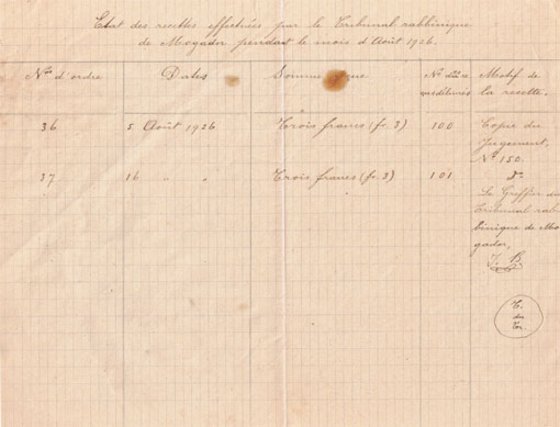 Etat des recettes effectuées par le Tribunal rabbinique
de Mogador pendant le mois d'Août 1926.
Nos d'ordre
Dates
Somme
No
Motif de
la recette.
36
5 Août 1926
Trois francs (fr. 3)
100
Copie du
Jugement,
No 150.
37
16 " "
Trois francs (fr. 3)
101
do
Le Greffier du
Tribunal rab-
binique de Mo-
gador,
J. B.
T.
des